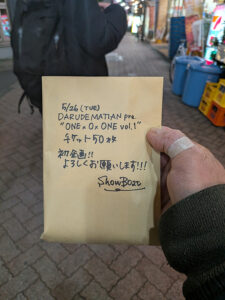 5/26 (TUE)
DARUDEMATIAN pre.
"ONE x O x ONE vol.1"
チケット50枚
初企画!!
よろしくお願いします!!!
ShowBoat